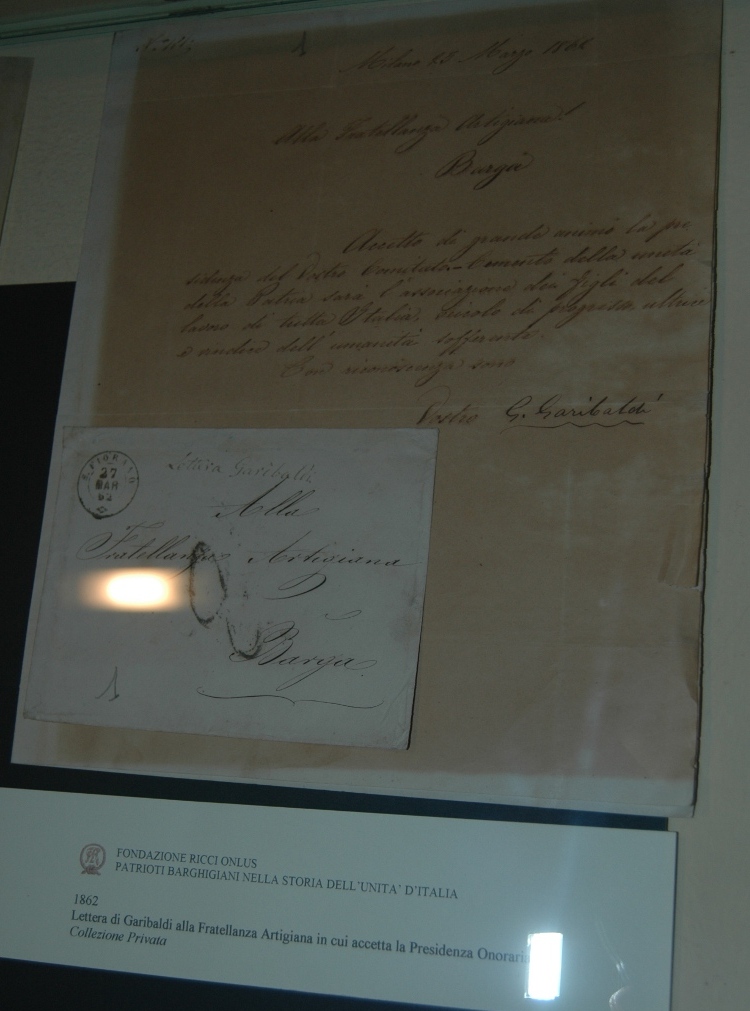 Milano 23 Marzo 1862
Alla Fratellanza Artigiana
Barga
Accetto di grande animo la pre
sidenza del Vostro Comitato - Cemento della unità
della Patria sarà l'associazione dei figli del
lavoro di tutta Italia, di progresso
e vindice dell'umanità sofferente.
Con riconoscenza sono
Vostro G. Garibaldi
27
MAR
62
Lettera Garibaldi
Alla
Fratellanza Artigiana
Barga
1
FONDAZIONE RICCI ONLUS
PATRIOTI BARGHIGIANI NELLA STORIA DELL'UNITA' D'ITALIA
1862
Lettera di Garibaldi alla Fratellanza Artigiana in cui accetta la Presidenza Onoraria
Collezione Privata